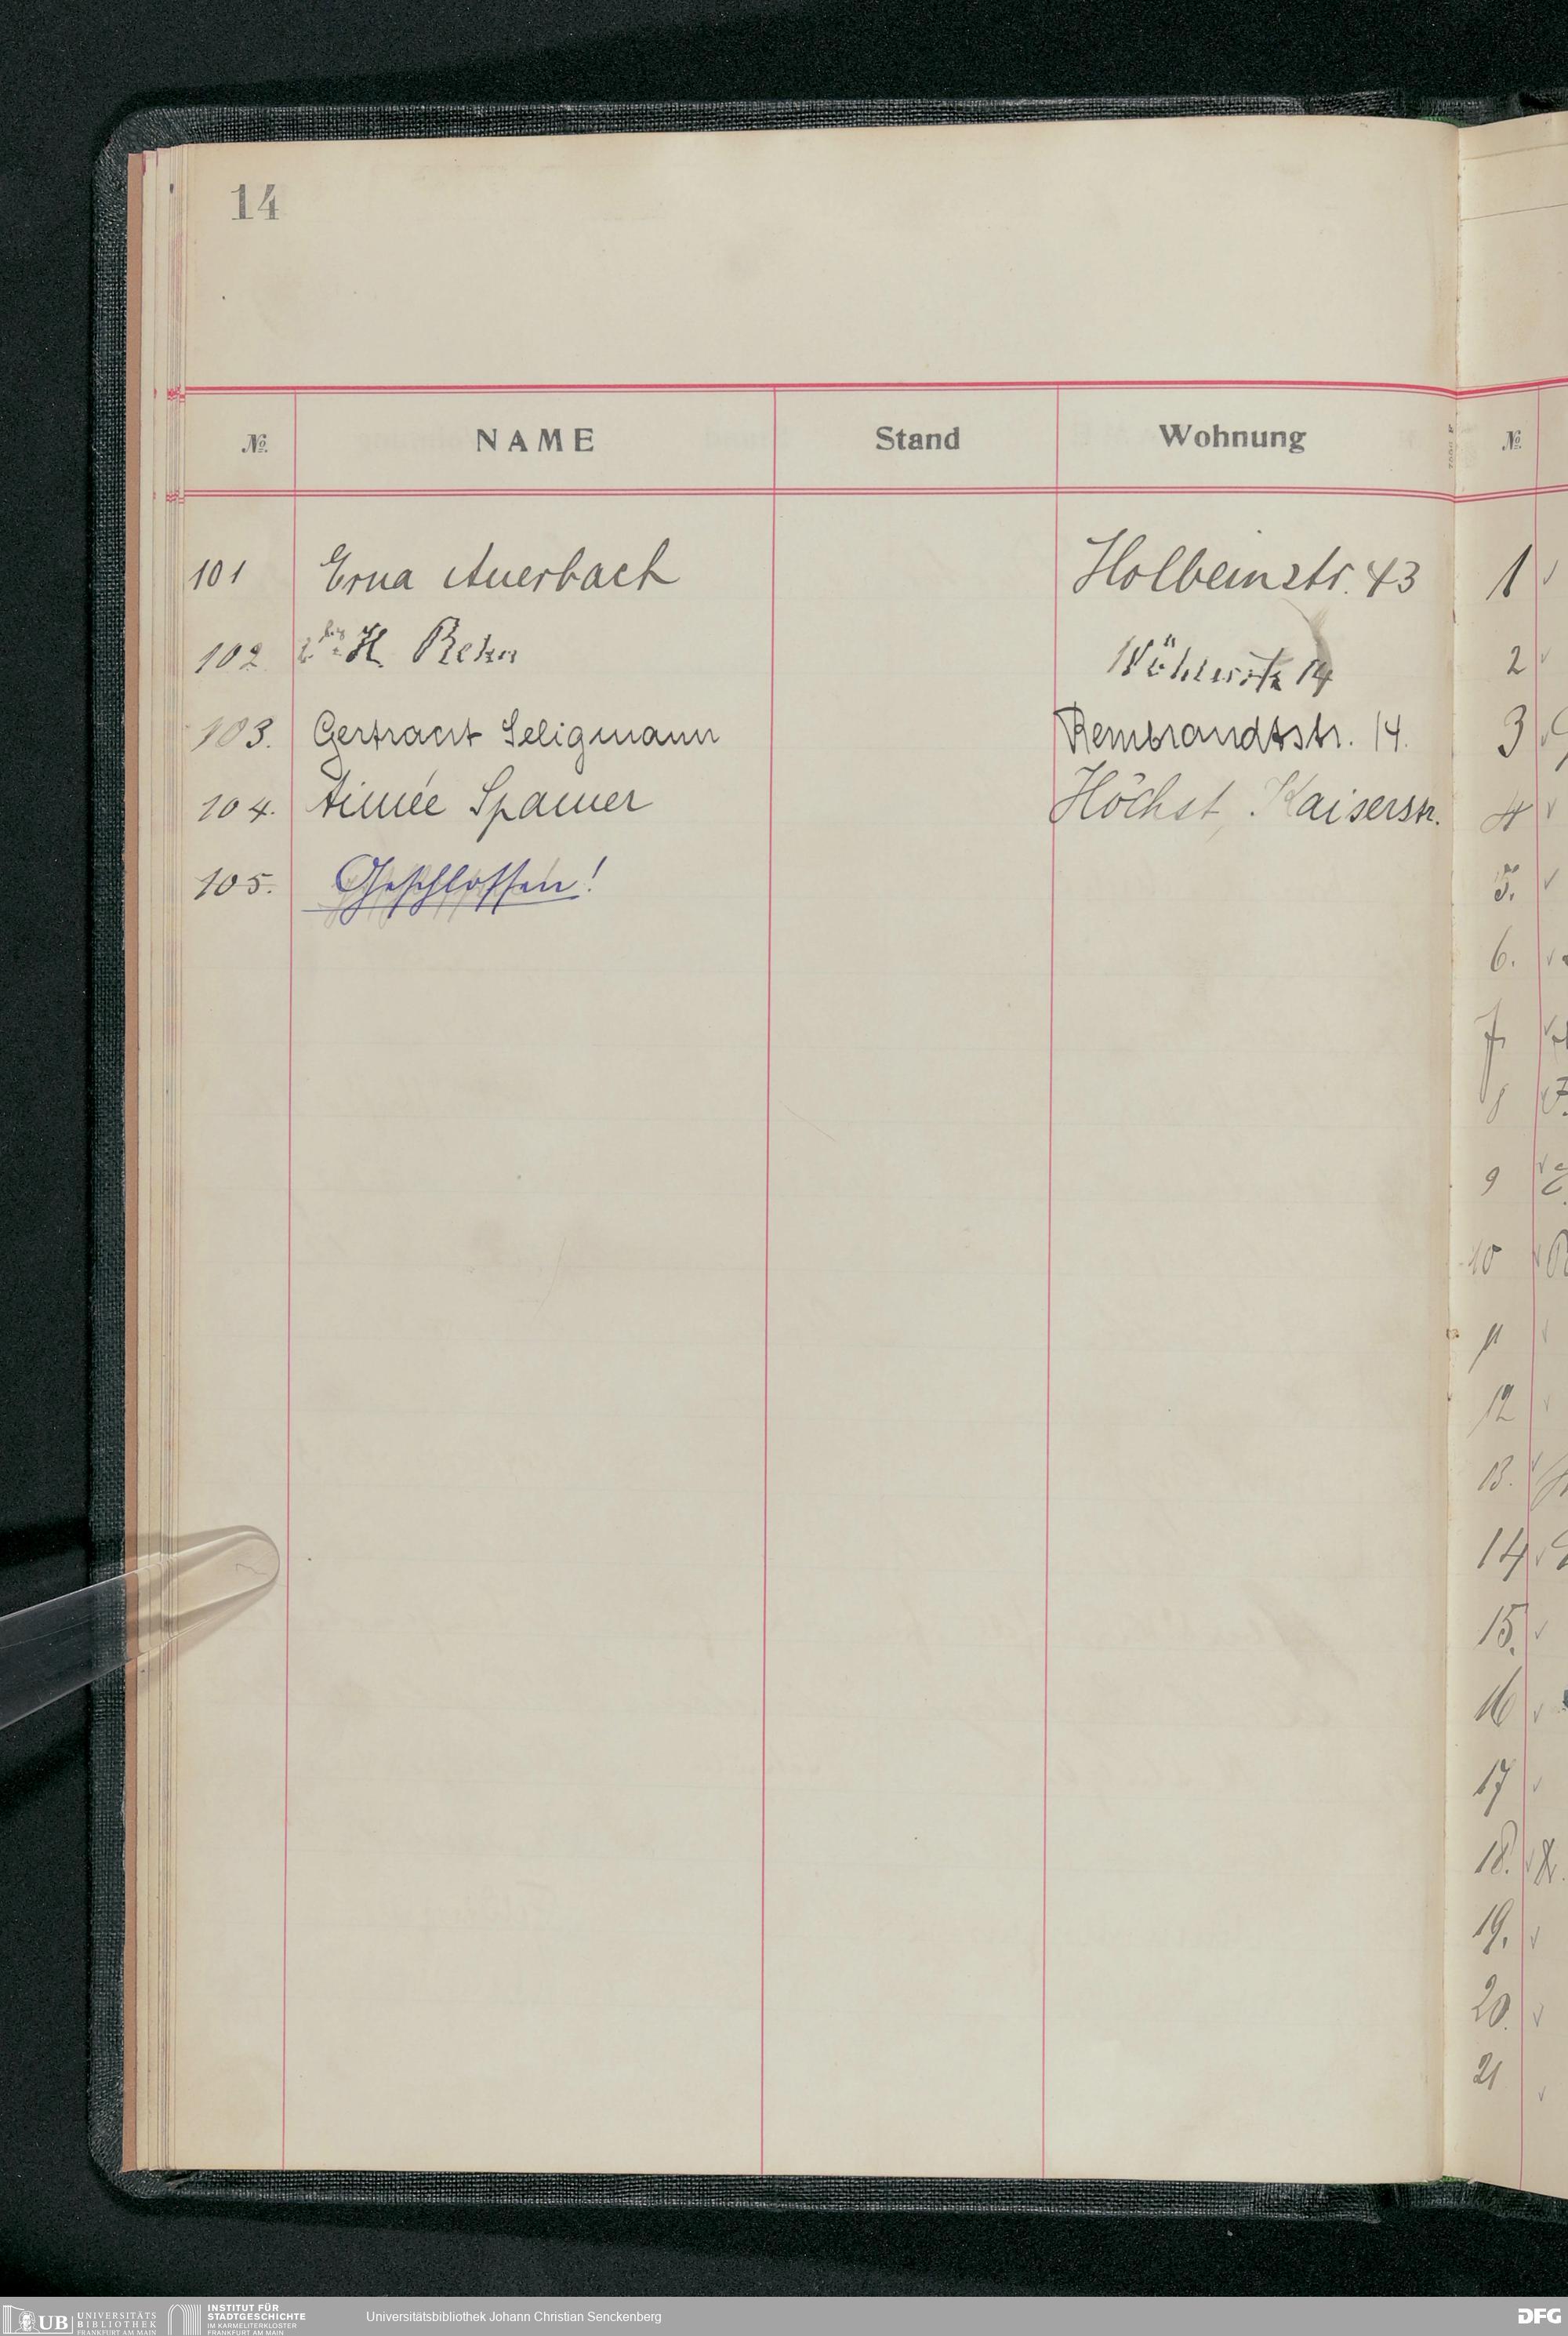 14
№ NAME Stand Wohnung №
101 Erna Auerbach Holbeinstr. 43 1
102 H. Rehn Wöhlerstr 14 2
103. Gertraut Seligmann Rembrandtstr. 14. 3
104. Aimée Spamer Höchst, Kaiserstr. 4
105. Geschlossen! 5.
6.
7.
8
9
10
11
12
13.
14
15.
16
17
18.
19.
20.
21
UB UNIVERSITÄTS BIBLIOTHEK FRANKFURT AM MAIN
INSTITUT FÜR STADTGESCHICHTE IM KARMELITERKLOSTER FRANKFURT AM MAIN
Universitätsbibliothek Johann Christian Senckenberg
DFG